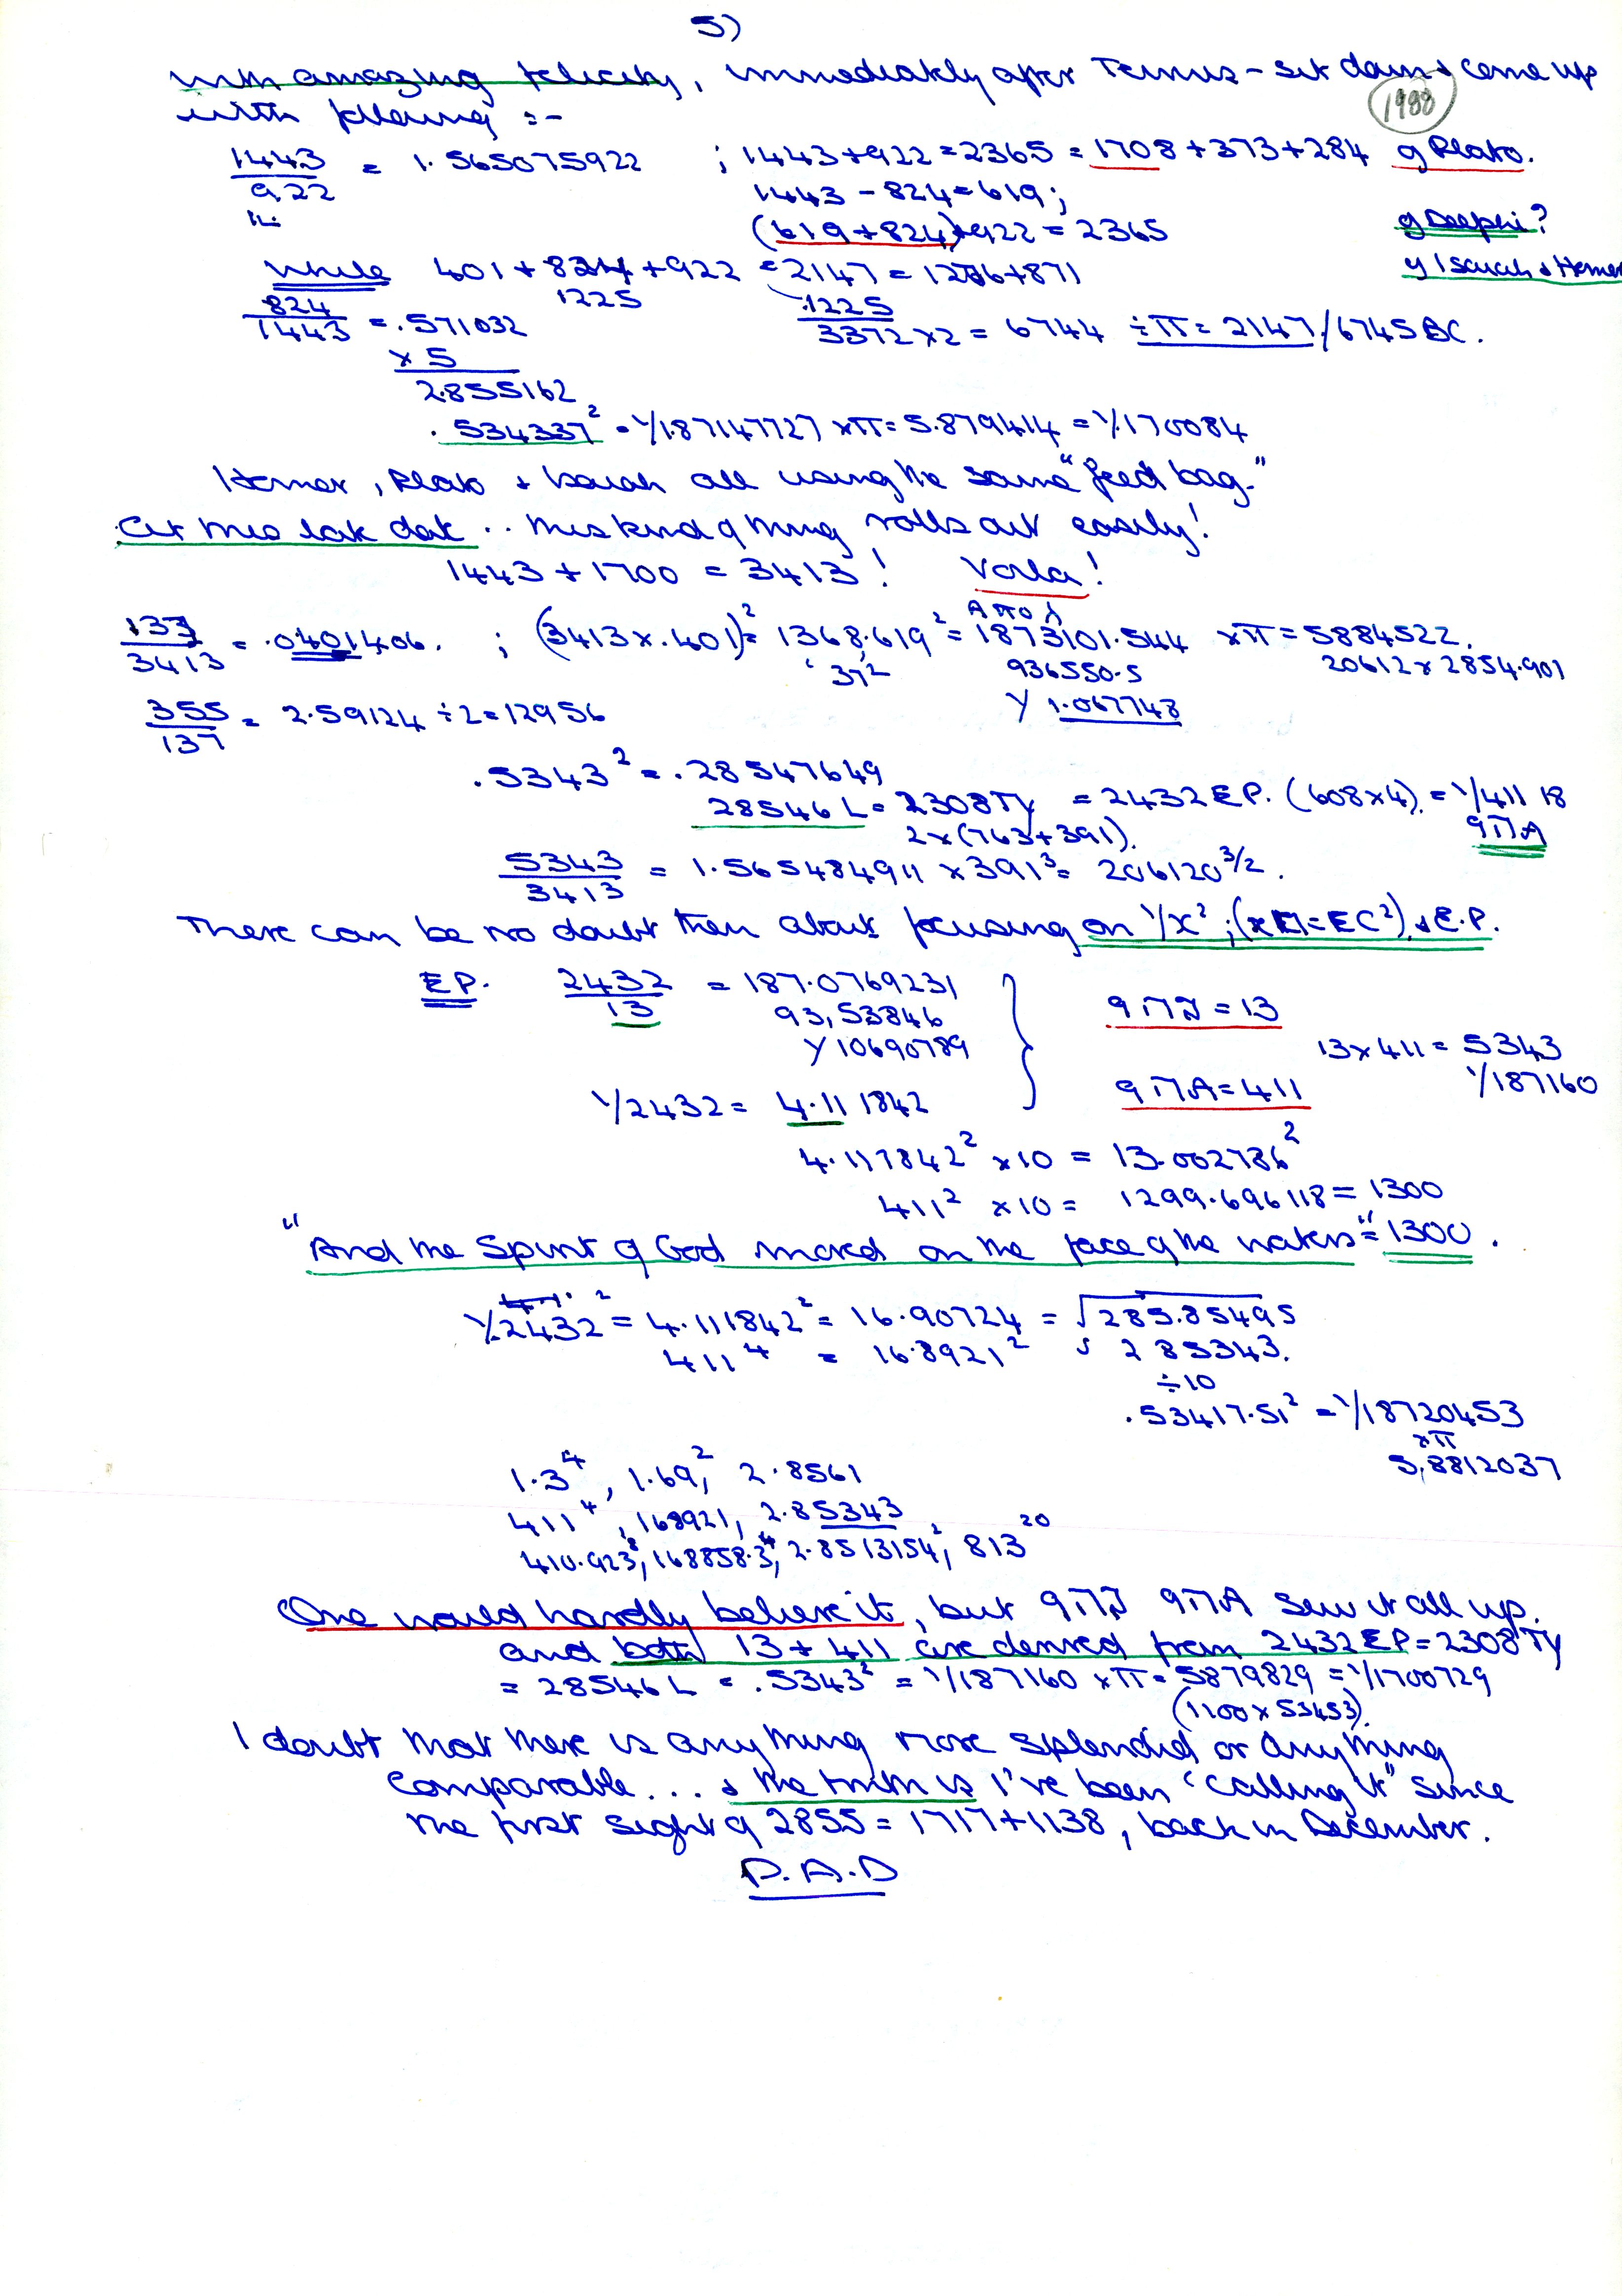 5)
with amazing felicity, immediately after Tennis - sit down & come up
1988
with following :-
1443/922 = 1.565075922 ; 1443+922=2365=1708+373+284 g Plato.
1443-824=619;
(619+824)+922=2365 g Delphi?
while 401+824+922=2147=1276+871 g Isaiah & Homer
1225
824/1443 = .571032
1225
3372x2=6744 ÷π=2147/6745BC.
x5
2.855162
.534337² = 1/187147727 xπ=5.879414=1/170084
Homer, Plato & Isaiah all using the same "feed bag."
At this late date .. this kind of thing rolls out easily!
1443+1700=3413! Voila!
Aπολ
137/3413 = .0401406. ; (3413x.401)²=1368.619²=1873101.544 xπ=5884522.
'37² 936550.5 20612x2854.901
Y 1.067743
355/137 = 2.59124÷2=12956
.5343²=.28547649
28546L=2308Ty =2432EP. (608x4).=1/41118
2x(763+391). 9ΠA
5343/3413 = 1.565484911x391³=206120^3/2.
There can be no doubt then about focusing on 1/X²; (x□=EC²), & E.P.
EP. 2432/13 = 187.0769231
93,53846 9ПЛ=13
Y10690789 13x411=5343
1/187160
1/2432=4.111842 9ПA=411
4.111842² x10=13.002786²
411² x10= 1299.696118=1300
"And the Spirit of God moved on the face of the waters"=1300.
1/.2432²=4.111842²=16.90724=√285.85495
411⁴ = 16.8921² √ 285343.
÷10
.53417.51²=1/18720453
xπ
5.8812037
1.3⁴, 1.69², 2.8561
411⁴, 168921, 2.85343
410.923⁸, 168858.3⁴, 2.8513154², 813²⁰
One would hardly believe it, but 9ПЛ 9ПA sew it all up.
and both 13+411 are derived from 2432EP=2308Ty
=28546L=.5343²=1/187160xπ=5879829=1/1700729
(1100x53453).
I doubt that there is anything more splendid or anything
comparable... & the truth is I've been 'calling it" since
the first sight of 2855=1717+1138, back in December.
P.A.D